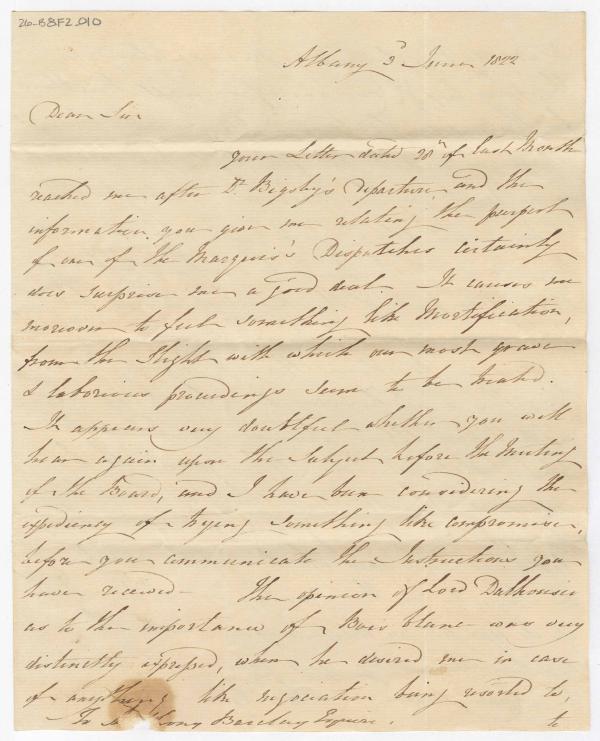 26-B8F2.010
Albany 3d June 1822
Dear Sir
your Letter dated 28th of last Month
reached me after Dr. Bigsby's departure and the
information you give me relating the purport
of one of the Marquis's Dispatches certainly
does surprise me a good deal. It causes me
moreover to feel something like Mortification,
from the Slight with which our most grave
& laborious proceedings seem to be treated.
It appears very doubtful whether you will
hear again upon the Subject before the Meeting
of the Board, and I have been considering the
expediency of trying something like compromise,
before you communicate the Instructions you
have received - The opinion of Lord Dalhousie
as to the importance of Bois blanc was very
distinctly expressed, when he desired me in case
of anything like negociation being resorted to,
To Anthony Barclay Esquire. to